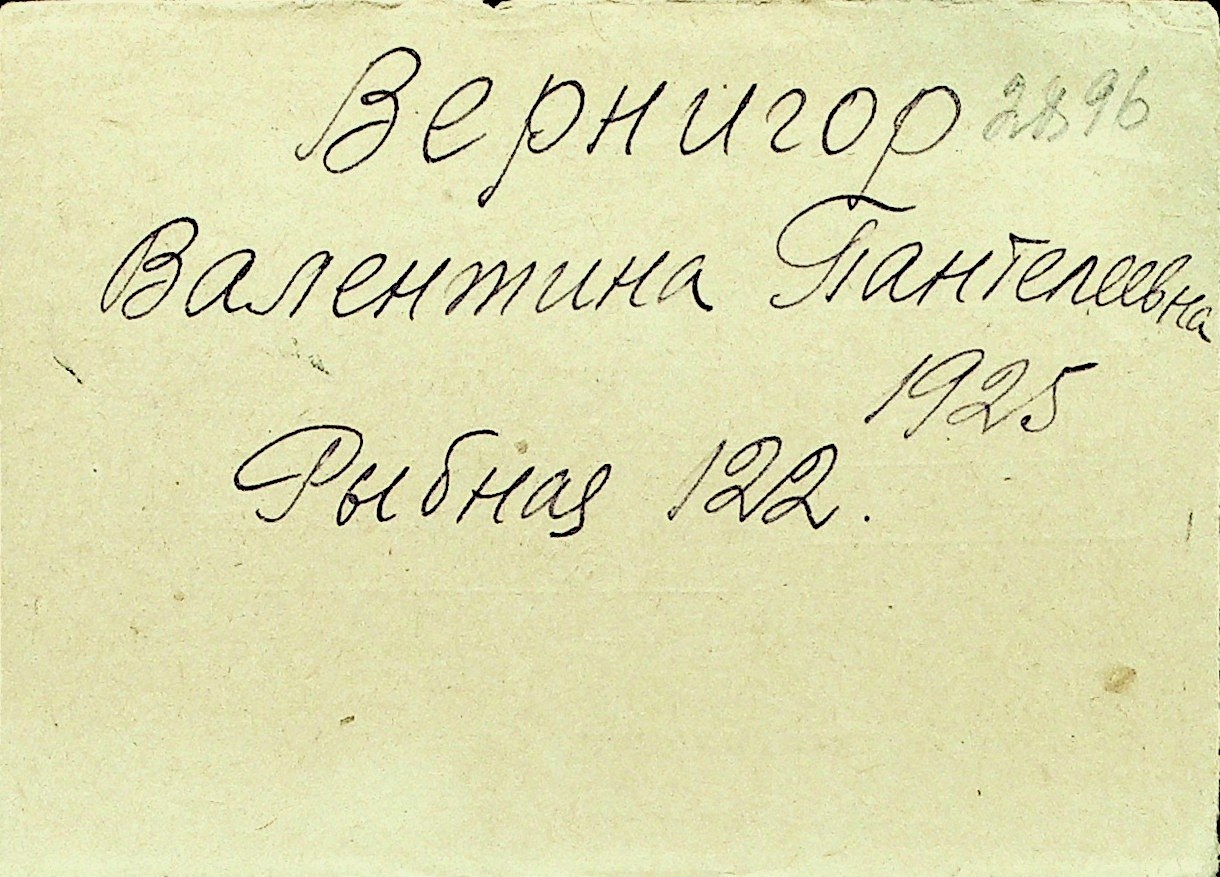 Вернигор 2896
Валентина Пантелеевна
1925
Рыбная 122.